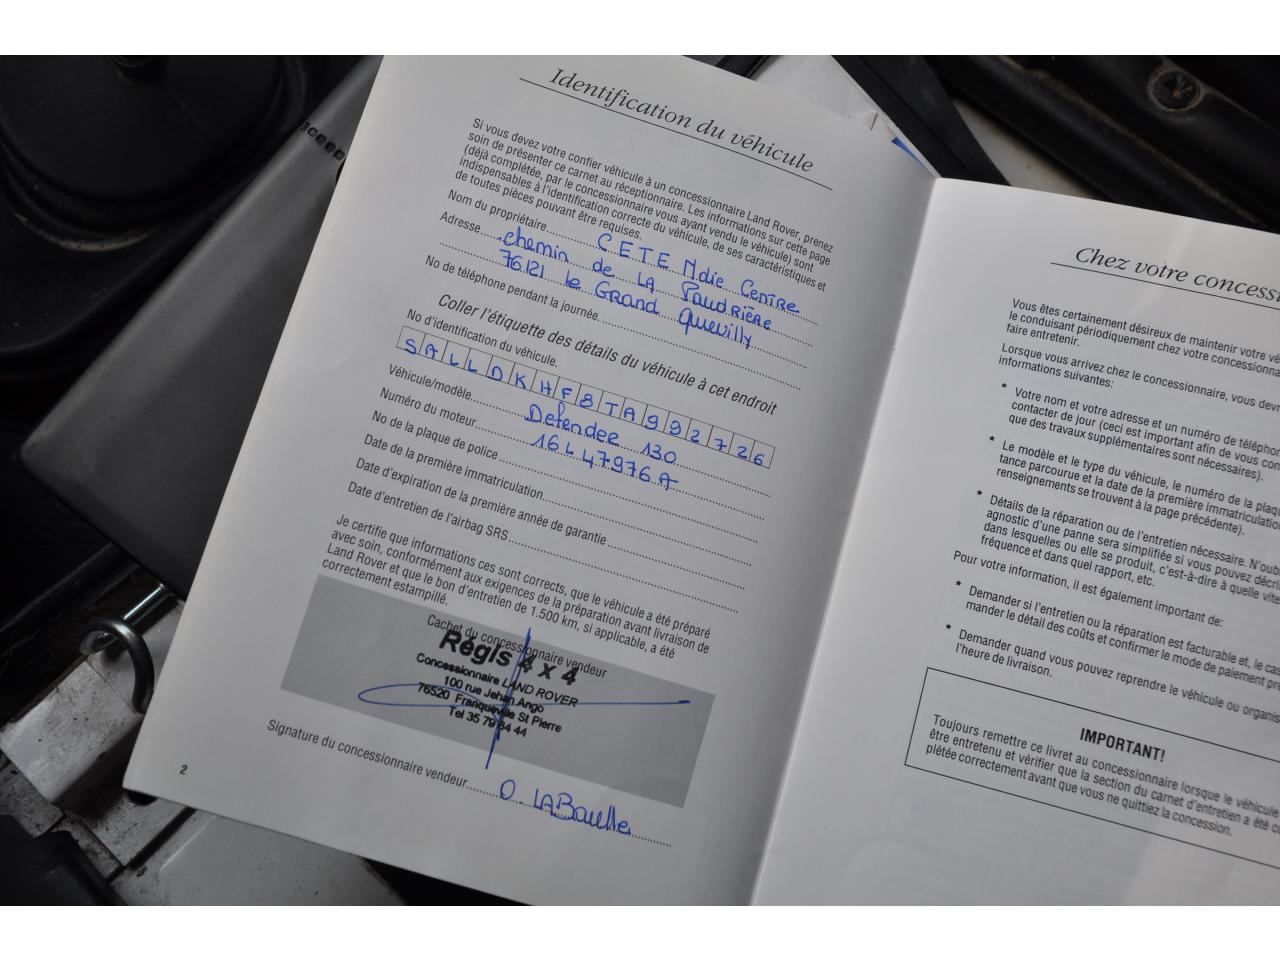 Identification du véhicule
Si vous devez votre confier véhicule à un concessionnaire Land Rover, prenez
soin de présenter ce carnet au réceptionnaire. Les informations sur cette page
(déjà complétée, par le concessionnaire vous ayant vendu le véhicule) sont
indispensables à l'identification correcte du véhicule, de ses caractéristiques et
de toutes pièces pouvant être requises.
Nom du propriétaire CETE Ndie Centre
Adresse chemin de LA Poudrière
76121 le Grand Quevilly
No de téléphone pendant la journée.
Coller l'étiquette des détails du véhicule à cet endroit
No d'identification du véhicule.
SALLDKHF8TA992726
Véhicule/modèle Defender 130
Numéro du moteur 16L47976A
No de la plaque de police
Date de la première immatriculation
Date d'expiration de la première année de garantie
Date d'entretien de l'airbag SRS
Je certifie que informations ces sont corrects, que le véhicule a été préparé
avec soin, conformément aux exigences de la préparation avant livraison de
Land Rover et que le bon d'entretien de 1.500 km, si applicable, a été
correctement estampillé.
Cachet du concessionnaire vendeur
Régis 4 x 4
Concessionnaire LAND ROVER
100 rue Jehan Ango
76520 Franqueville St Pierre
Tel 35 79 84 44
Signature du concessionnaire vendeur O. LABaulle
2
Chez votre concessi
Vous êtes certainement désireux de maintenir votre vé
le conduisant périodiquement chez votre concessionna
faire entretenir.
Lorsque vous arrivez chez le concessionnaire, vous devr
informations suivantes:
* Votre nom et votre adresse et un numéro de téléphon
contacter de jour (ceci est important afin de vous con
que des travaux supplémentaires sont nécessaires).
* Le modèle et le type du véhicule, le numéro de la plaque
tance parcourue et la date de la première immatriculation
renseignements se trouvent à la page précédente).
* Détails de la réparation ou de l'entretien nécessaire. N'oubl
agnostic d'une panne sera simplifiée si vous pouvez décri
dans lesquelles ou elle se produit, c'est-à-dire à quelle vite
fréquence et dans quel rapport, etc.
Pour votre information, il est également important de:
* Demander si l'entretien ou la réparation est facturable et, le cas
mander le détail des coûts et confirmer le mode de paiement pr
* Demander quand vous pouvez reprendre le véhicule ou organis
l'heure de livraison.
IMPORTANT!
Toujours remettre ce livret au concessionnaire lorsque le véhicule
être entretenu et vérifier que la section du carnet d'entretien a été co
plétée correctement avant que vous ne quittiez la concession.